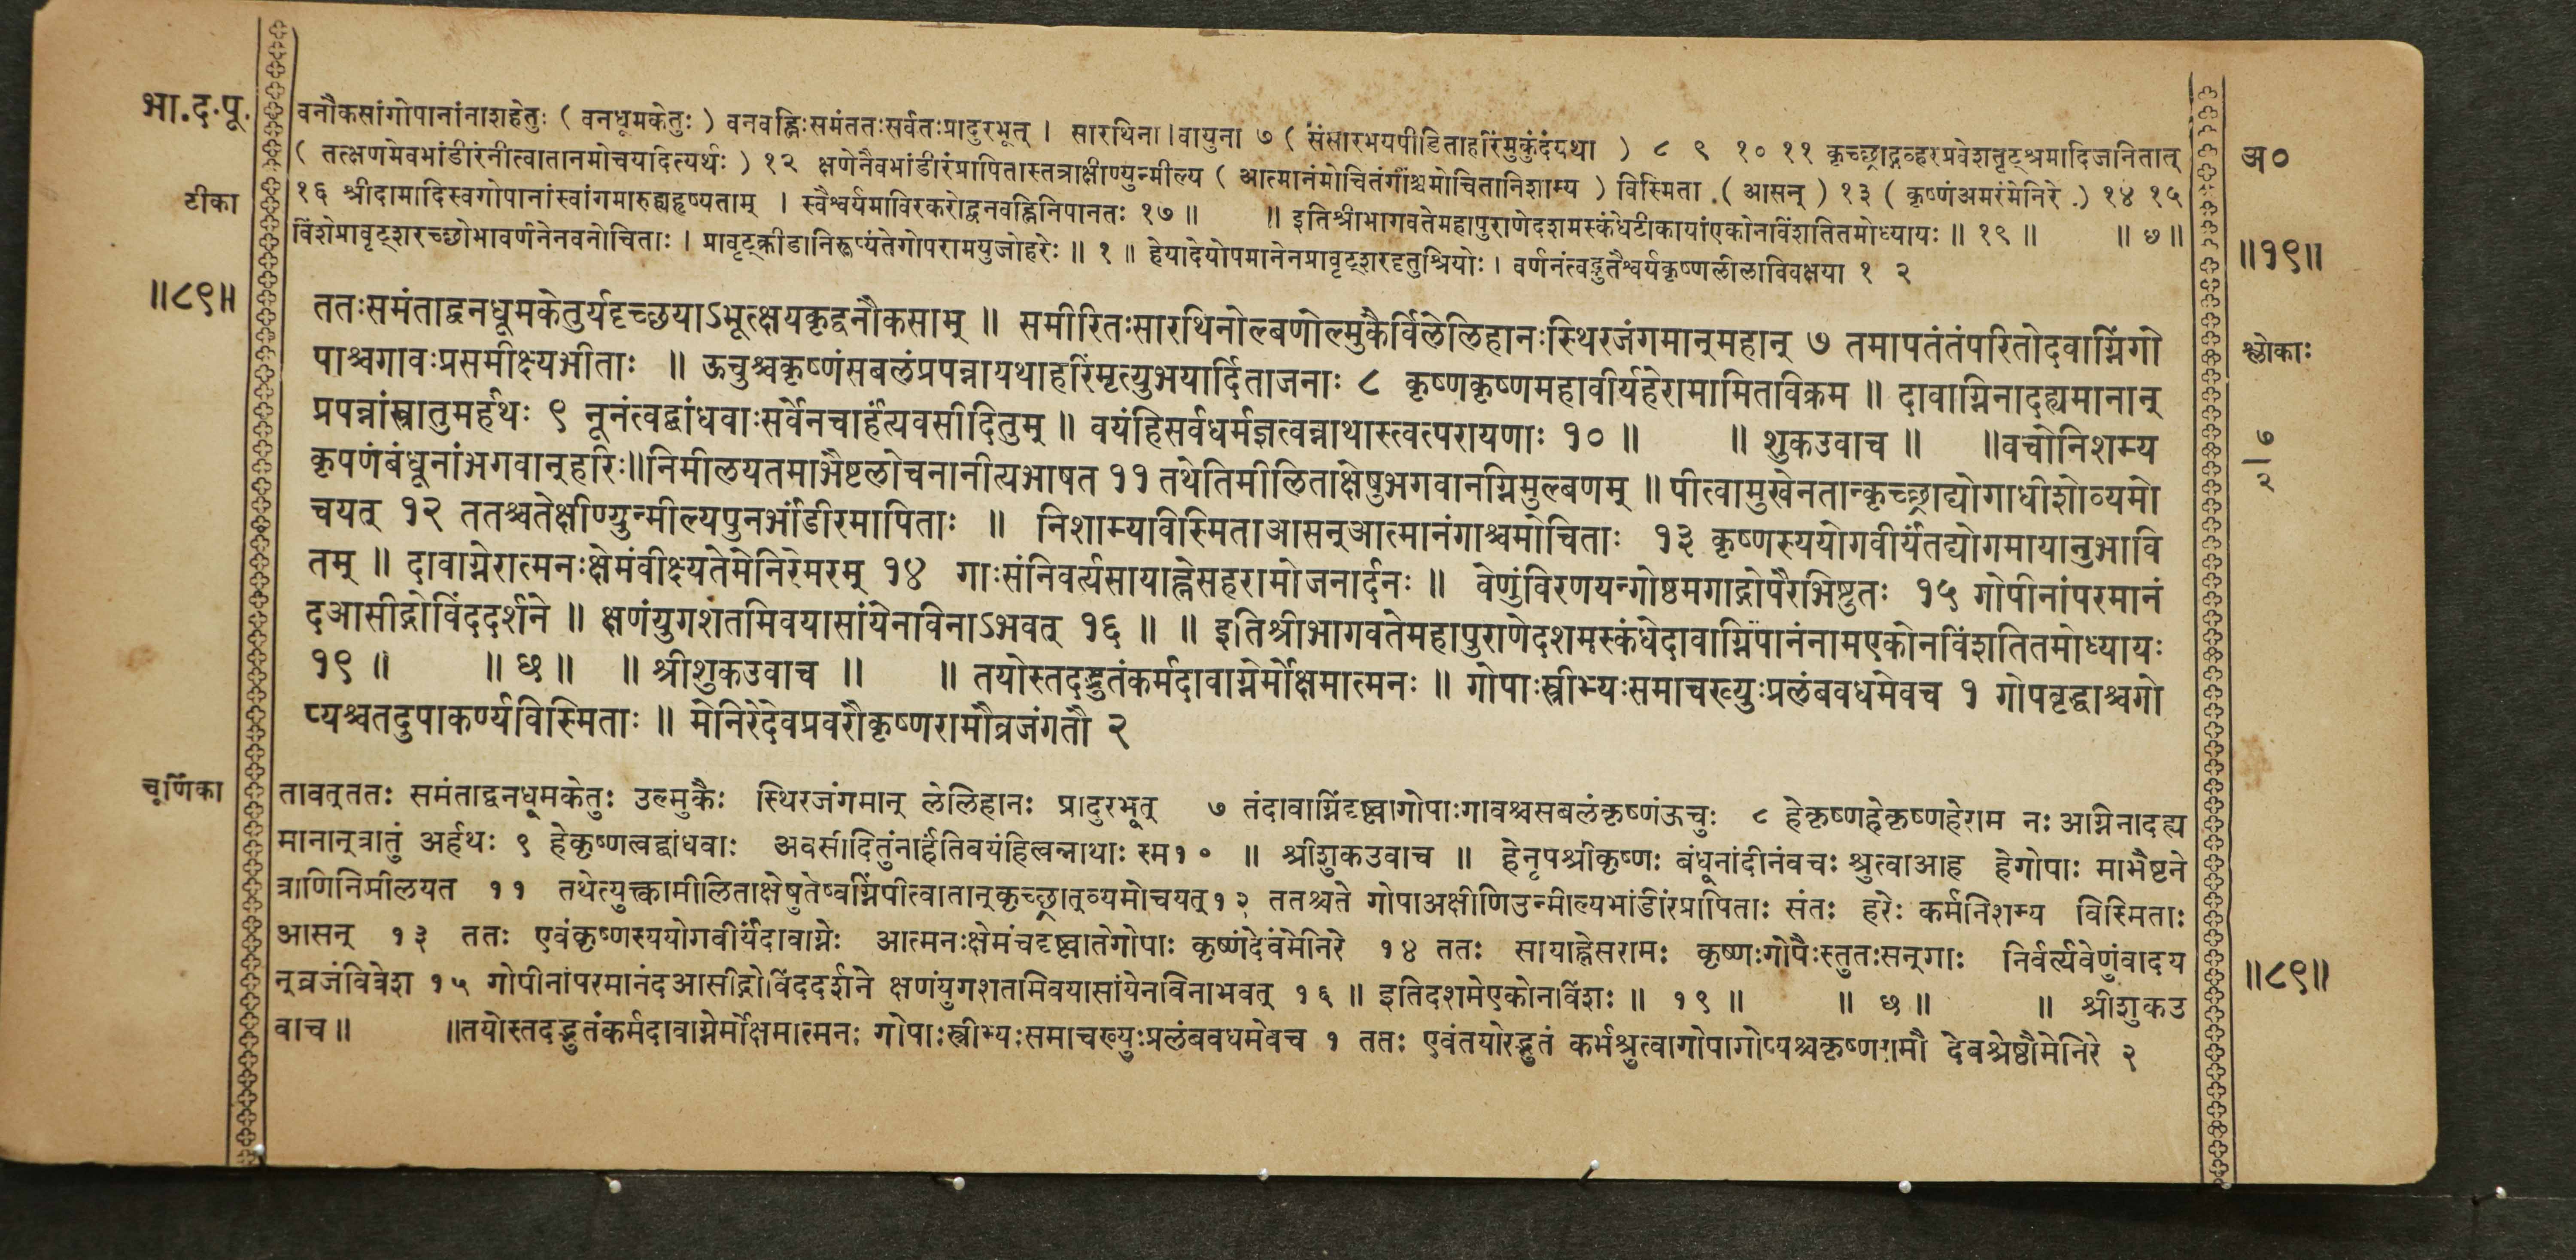 भा.द.पू.
वनौकसांगोपानांनाशहेतुः ( वनधूमकेतुः ) वनवह्निःसमंततःसर्वतःप्रादुरभूत् । सारथिना।वायुना ७ ( संसारभयपीडिताहरिंमुकुंदंयथा ) ८ ९ १० ११ कृच्छ्राद्गव्हरप्रवेशतृट्श्रमादिजनितात्
( तत्क्षणमेवभांडीरंनीत्वातानमोचयादित्यर्थः ) १२ क्षणेनैवभांडीरंप्रापितास्तत्राक्षीण्युन्मील्य ( आत्मानंमोचितंगाश्चमोचितानिशाम्य ) विस्मिता ( आसन् ) १३ ( कृष्णंअमरंमेनिरे ) १४ १५
१६ श्रीदामादिस्वगोपानांस्वांगमारुह्यहृष्यताम् । स्वैश्वर्यमाविरकरोद्वनवह्निनिपानतः १७ ॥ ॥ इतिश्रीभागवतेमहापुराणेदशमस्कंधेटीकायांएकोनविंशतितमोध्यायः ॥ १९ ॥ ॥ ७ ॥
विंशेप्रावृट्शरच्छोभावर्णनेनवनोचिताः । प्रावृट्क्रीडानिरूप्यंतेगोपरामयुजोहरेः ॥ १ ॥ हेयादेयोपमानेनप्रावृट्शरदृतुश्रियोः । वर्णनंत्वद्भुतैश्वर्यकृष्णलीलाविवक्षया १ २
टीका
॥८९॥
अ०
॥१९॥
ततःसमंताद्वनधूमकेतुर्यदृच्छयाऽभूत्क्षयकृद्वनौकसाम् ॥ समीरितःसारथिनोल्बणोल्मुकैर्विलेलिहानःस्थिरजंगमान्महान् ७ तमापतंतंपरितोदवाग्निंगो
पाश्चगावःप्रसमीक्ष्यभीताः ॥ ऊचुश्चकृष्णंसबलंप्रपन्नायथाहरिंमृत्युभयार्दिताजनाः ८ कृष्णकृष्णमहावीर्यहेरामामितविक्रम ॥ दावाग्निनादह्यमानान्
प्रपन्नांस्त्रातुमर्हथः ९ नूनंत्वद्बांधवाःसर्वेनचार्हंत्यवसीदितुम् ॥ वयंहिसर्वधर्मज्ञत्वन्नाथास्त्वत्परायणाः १० ॥ ॥ शुकउवाच ॥ ॥वचोनिशम्य
कृपणंबंधूनांभगवान्हरिः॥निमीलयतमाभैष्टलोचनानीत्यभाषत ११ तथेतिमीलिताक्षेषुभगवानग्निमुल्बणम् ॥ पीत्वामुखेनतान्कृच्छ्राद्योगाधीशोव्यमो
चयत् १२ ततश्चतेक्षीण्युन्मील्यपुनर्भांडीरमापिताः ॥ निशाम्यविस्मिताआसन्आत्मानंगाश्चमोचिताः १३ कृष्णस्ययोगवीर्यंतद्योगमायानुभावि
तम् ॥ दावाग्नेरात्मनःक्षेमंवीक्ष्यतेमेनिरेमरम् १४ गाःसंनिवर्त्यसायाह्नेसहरामोजनार्दनः ॥ वेणुंविरणयन्गोष्ठमगाद्गोपैरभिष्टुतः १५ गोपीनांपरमानं
दआसीद्गोविंददर्शने ॥ क्षणंयुगशतमिवयासांयेनविनाऽभवत् १६ ॥ ॥ इतिश्रीभागवतेमहापुराणेदशमस्कंधेदावाग्निपानंनामएकोनविंशतितमोध्यायः
१९ ॥ ॥ छ ॥ ॥ श्रीशुकउवाच ॥ ॥ तयोस्तदद्भुतंकर्मदावाग्नेर्मोक्षमात्मनः ॥ गोपाःस्त्रीभ्यःसमाचख्युःप्रलंबवधमेवच १ गोपवृद्धाश्चगो
प्यश्चतदुपाकर्ण्यविस्मिताः ॥ मेनिरेदेवप्रवरौकृष्णरामौव्रजंगतौ २
श्लोकाः
७
२
चूर्णिका
तावत्ततः समंताद्वनधूमकेतुः उल्मुकैः स्थिरजंगमान् लेलिहानः प्रादुरभूत् ७ तंदावाग्निंदृष्ट्वागोपाःगावश्चसबलंकृष्णंऊचुः ८ हेकृष्णहेकृष्णहेराम नः अग्निनादह्य
मानान्त्रातुं अर्हथः ९ हेकृष्णत्वद्बांधवाः अवसीदितुंनार्हंतिवयंहित्वन्नाथाः स्म१० ॥ श्रीशुकउवाच ॥ हेनृपश्रीकृष्णः बंधूनांदीनंवचः श्रुत्वाआह हेगोपाः माभैष्टने
त्राणिनिमीलयत ११ तथेत्युक्त्वामीलिताक्षेषुतेष्वग्निंपीत्वातान्कृच्छ्रात्व्यमोचयत्१२ ततश्चते गोपाअक्षीणिउन्मील्यभांडीरंप्रापिताः संतः हरेः कर्मनिशम्य विस्मिताः
आसन् १३ ततः एवंकृष्णस्ययोगवीर्यंदावाग्नेः आत्मनःक्षेमंचदृष्ट्वातेगोपाः कृष्णंदेवंमेनिरे १४ ततः सायाह्नेसरामः कृष्णःगोपैःस्तुतःसन्गाः निर्वर्त्यवेणुंवादय
न्व्रजंविवेश १५ गोपीनांपरमानंदआसीद्गोविंददर्शने क्षणंयुगशतमिवयासांयेनविनाभवत् १६ ॥ इतिदशमेएकोनविंशः ॥ १९ ॥ ॥ छ ॥ ॥ श्रीशुकउ
वाच ॥ ॥तयोस्तदद्भुतंकर्मदावाग्नेर्मोक्षमात्मनः गोपाःस्त्रीभ्यःसमाचख्युःप्रलंबवधमेवच १ ततः एवंतयोरद्भुतं कर्मश्रुत्वागोपागोप्यश्चकृष्णरामौ देवश्रेष्ठौमेनिरे २
॥८९॥